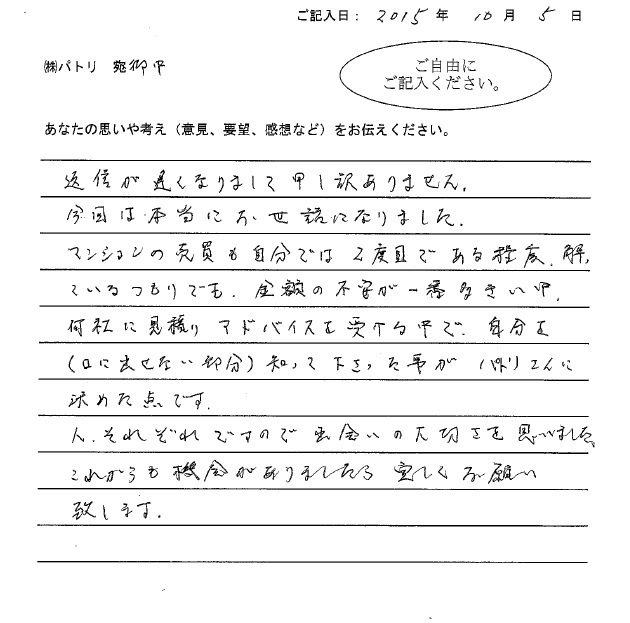 ご記入日: 2015 年 10 月 5 日
㈱パトリ 宛御中
ご自由に
ご記入ください。
あなたの思いや考え（意見、要望、感想など）をお伝えください。
返信が遅くなりまして申し訳ありません。
今回は本当にお世話になりました。
マンションの売買も自分では2度目である程度、解っ
ているつもりでも、金額の不安が一番大きい中、
何社に見積りアドバイスを受ける中で、自分を
(口に出せない部分)知って下さった事がパトリさんに
決めた点です。
人、それぞれですので出会いの大切さを思いました。
これからも機会がありましたら宜しくお願い
致します。